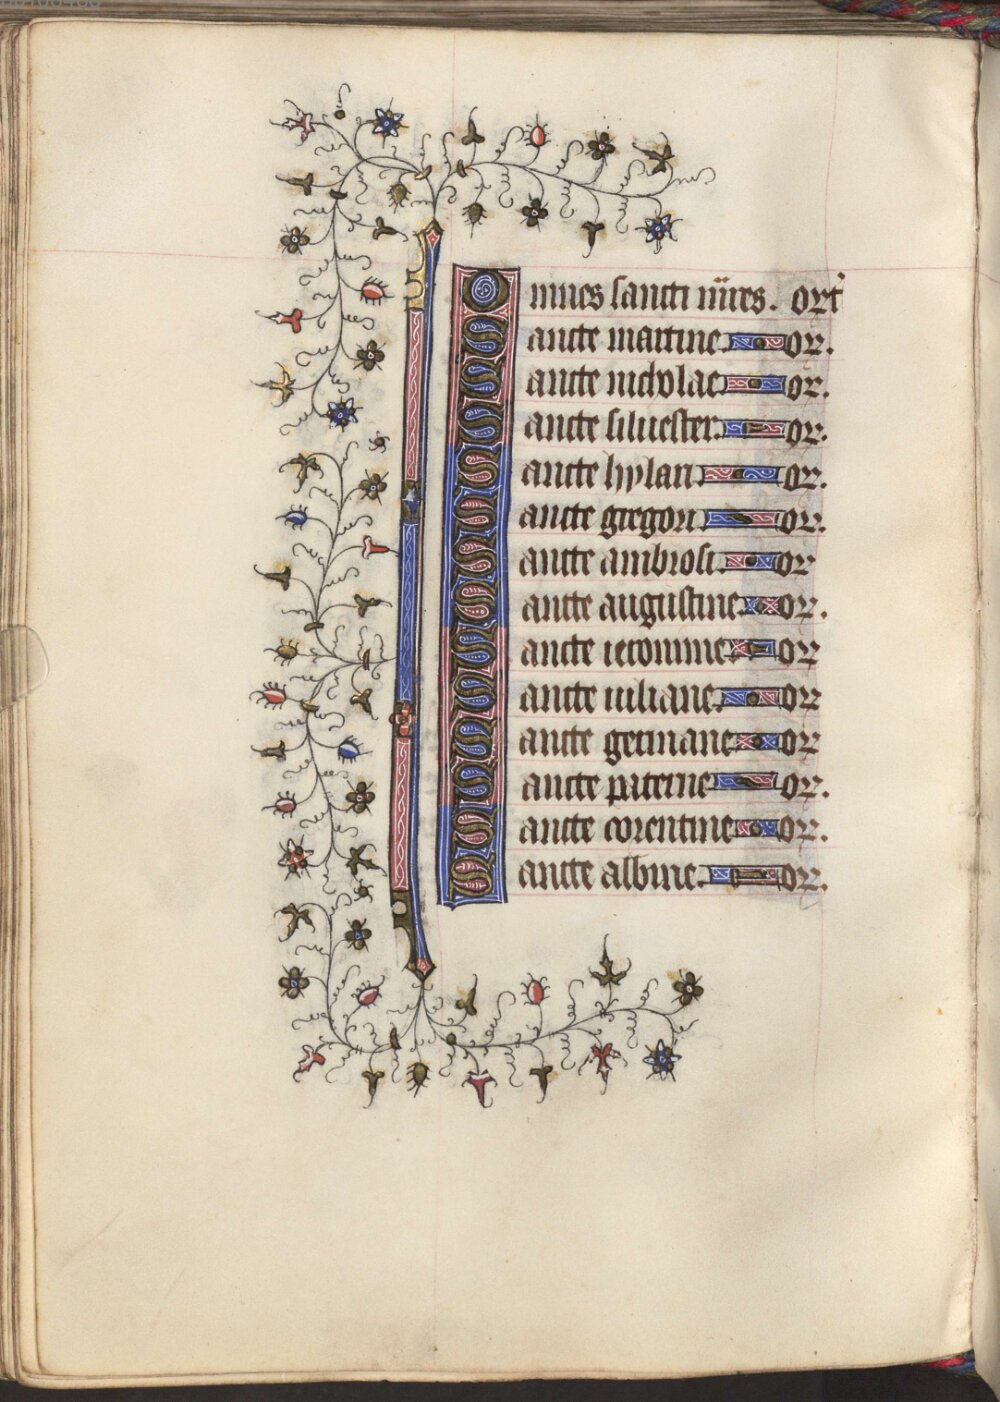 Omnes sancti m̃res. ort̉
Sancte martine or.
Sancte nicholae or.
Sancte siluester. or.
Sancte hylari or.
Sancte gregori or.
Sancte ambrosi or
Sancte augustine or.
Sancte ieronime or
Sancte iuliane or
Sancte germane or
Sancte paterne or.
Sancte corentine or.
Sancte albine. or.